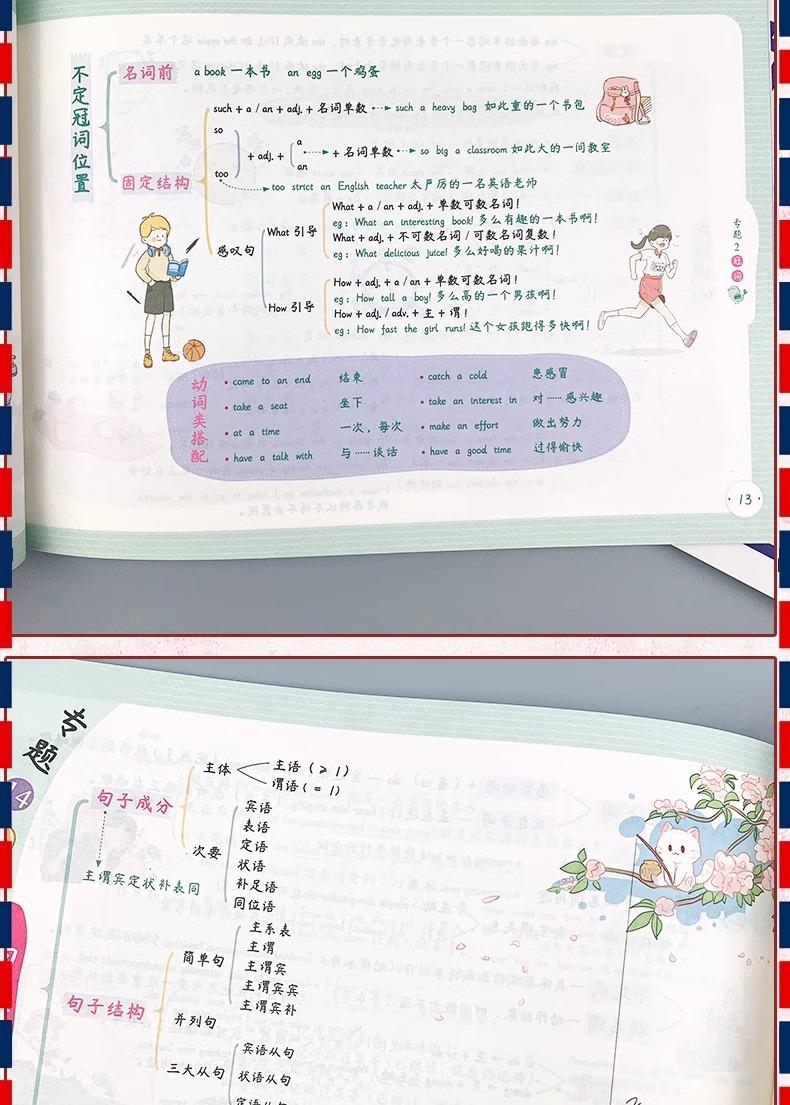 不定冠词位置
名词前 a book 一本书 an egg 一个鸡蛋
固定结构
such + a / an + adj. + 名词单数 such a heavy bag 如此重的一个书包
so
too
+ adj. +
a
an
+ 名词单数 so big a classroom 如此大的一间教室
too strict an English teacher 太严厉的一名英语老师
感叹句
What 引导
What + a / an + adj. + 单数可数名词!
eg: What an interesting book! 多么有趣的一本书啊!
What + adj. + 不可数名词 / 可数名词复数!
eg: What delicious juice! 多么好喝的果汁啊!
How 引导
How + adj. + a / an + 单数可数名词!
eg: How tall a boy! 多么高的一个男孩啊!
How + adj. / adv. + 主 + 谓!
eg: How fast the girl runs! 这个女孩跑得多快啊!
专题2 冠词
动词类搭配
• come to an end 结束 • catch a cold 患感冒
• take a seat 坐下 • take an interest in 对……感兴趣
• at a time 一次，每次 • make an effort 做出努力
• have a talk with 与……谈话 • have a good time 过得愉快
·13·
专题
14
句子成分
主谓宾定状补表同
主体
主语 (≥1)
谓语 (=1)
次要
宾语
表语
定语
状语
补足语
同位语
句子结构
简单句
主系表
主谓
主谓宾
主谓宾宾
主谓宾补
并列句
三大从句
宾语从句
状语从句
定语从句